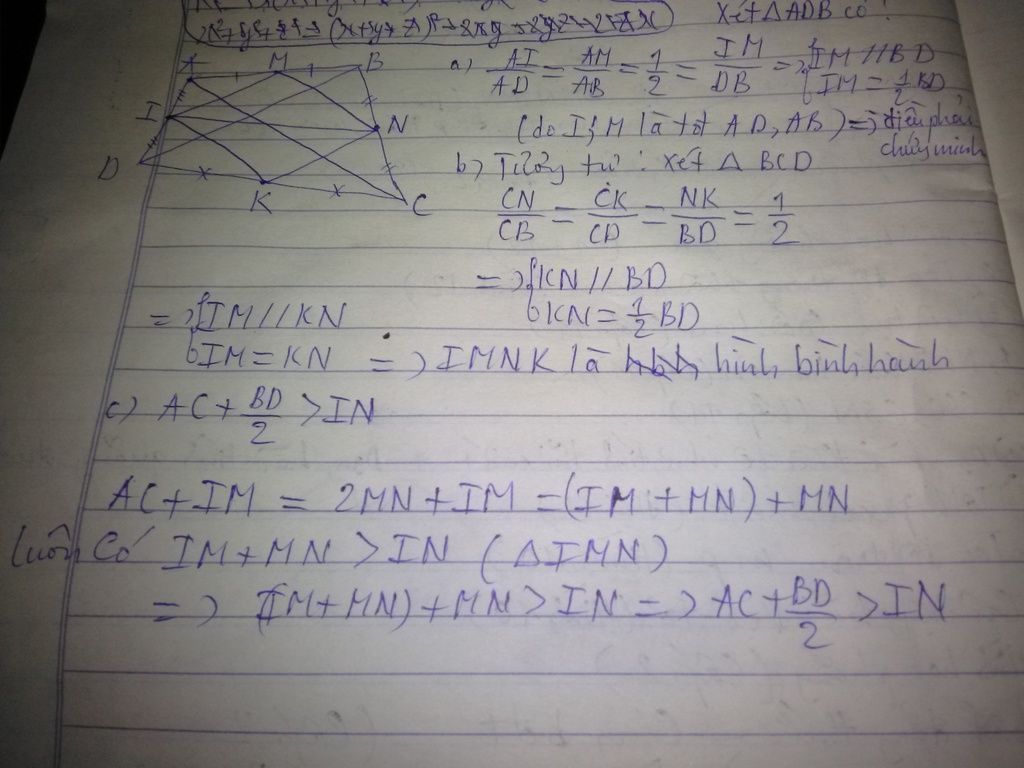 x²+y²+z² = (x+y+z)² - 2xy - 2yz - 2zx
Xét △ADB có:
A M B
I N
D K C
a) AI/AD = AM/AB = 1/2 = IM/DB => { IM // BD
IM = 1/2 BD
(do I; M là tđ AD, AB) => điều phải chứng minh
b) Tương tự: xét △ BCD
CN/CB = CK/CD = NK/BD = 1/2
=> { KN // BD
KN = 1/2 BD
=> { IM // KN
IM = KN => IMNK là hình bình hành
c) AC + BD/2 > IN
AC + IM = 2MN + IM = (IM + MN) + MN
Luôn Có IM + MN > IN (△IMN)
=> (IM + MN) + MN > IN => AC + BD/2 > IN